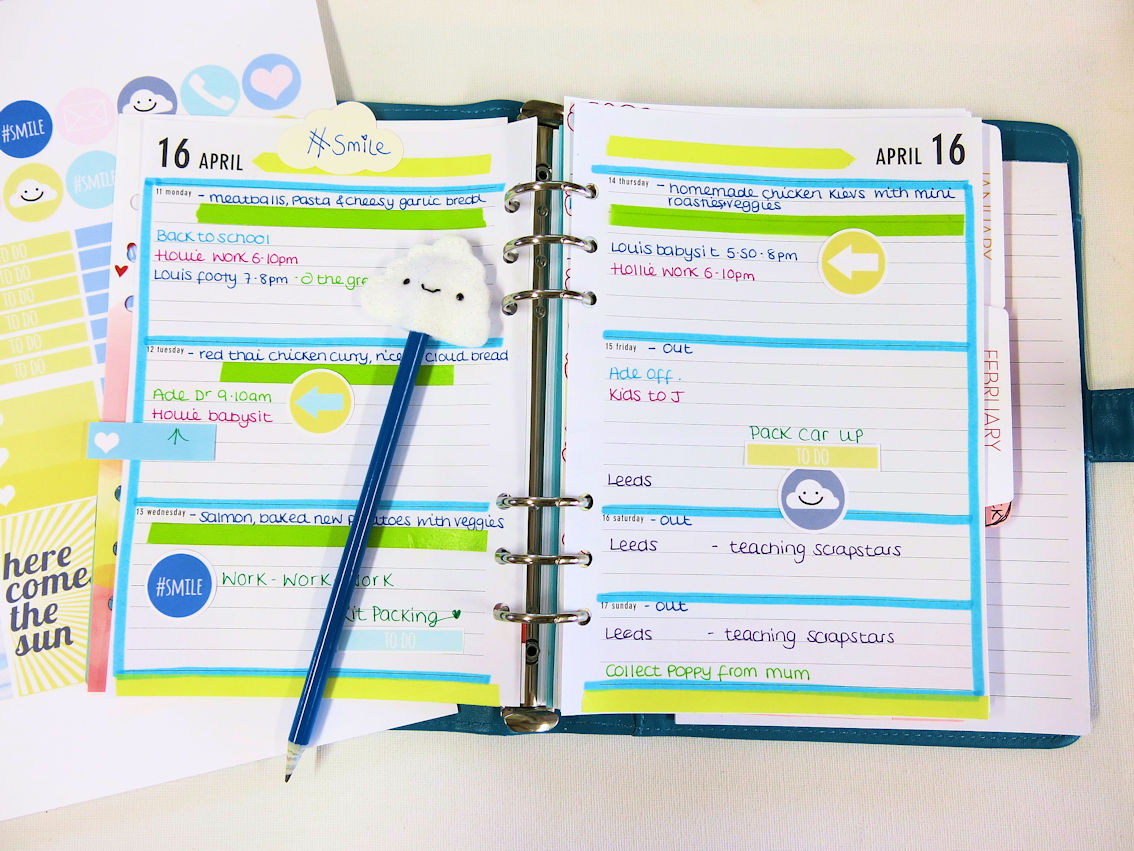 #SMILE
#SMILE
TO DO
TO DO
TO DO
TO DO
TO DO
TO DO
here
come
the
sun
16 APRIL
#Smile
11 monday - meatballs, pasta & cheesy garlic bread
Back to school
Hollie work 6-10pm
Louis footy 7-8pm - @ the
12 tuesday - red thai chicken curry, rice & cloud bread
Ade Dr 9.10am
Hollie babysit
13 wednesday - salmon, baked new potatoes with veggies
#SMILE
Work - Work - Work
Kit Packing
TO DO
APRIL 16
14 thursday - homemade chicken kievs with mini
roasties + veggies
Louis babysit 5.50-8pm
Hollie work 6-10pm
15 friday - out
Ade off.
Kids to J
Pack car up
TO DO
Leeds
16 saturday - out
Leeds - teaching scrapstars
17 sunday - out
Leeds - teaching scrapstars
Collect Poppy from mum
JANUARY
FEBRUARY